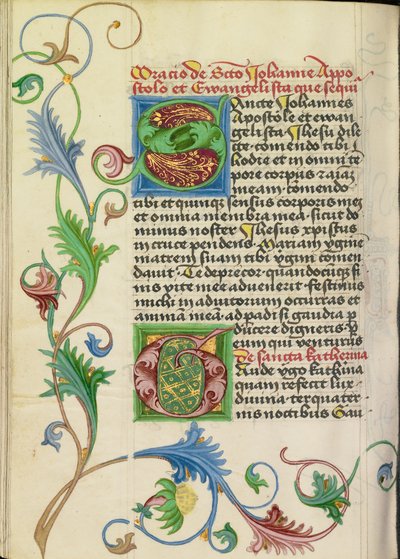 Oracio de Scto Johanne Appo
stolo et Ewangelista que sequi
Sancte Johannes
Apostole et ewan
gelista Jhesu dile
cte comendo tibi
hodie et in omni te
pore corpus et aiaz
meam comendo
tibi et quinque sensus corporis mei
et omnia membra mea sicut do
minus noster Jhesus xpistus
in cruce pendens Mariam vgine
matrem suam tibi vgini comen
dauit Te deprecor quandocuqz fi
nis vite mee aduenerit festinus
michi in adiutorium occurras et
animam meam ad padisi gaudia p
ducere digneris p
eum qui venturus
De sancta katherina
Gaude vgo kathina
quam reficit lux
diuina ter quater
nis noctibus Gau